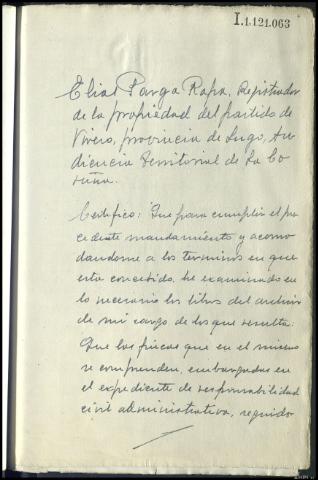 I.1.121.063
Elias Parga Rapa, Registrador
de la propiedad del partido de
Vivero, provincia de Lugo, Au
diencia Territorial de La Co
ruña.
Certifico: Que para cumplir el pre
cedente mandamiento y acomo
dandome a los terminos en que
esta concebido, he examinado en
lo necesario los libros del archivo
de mi cargo de los que resulta:
Que las fincas que en el mismo
se comprenden, embargadas en
el expediente de responsabilidad
civil administrativa, seguido